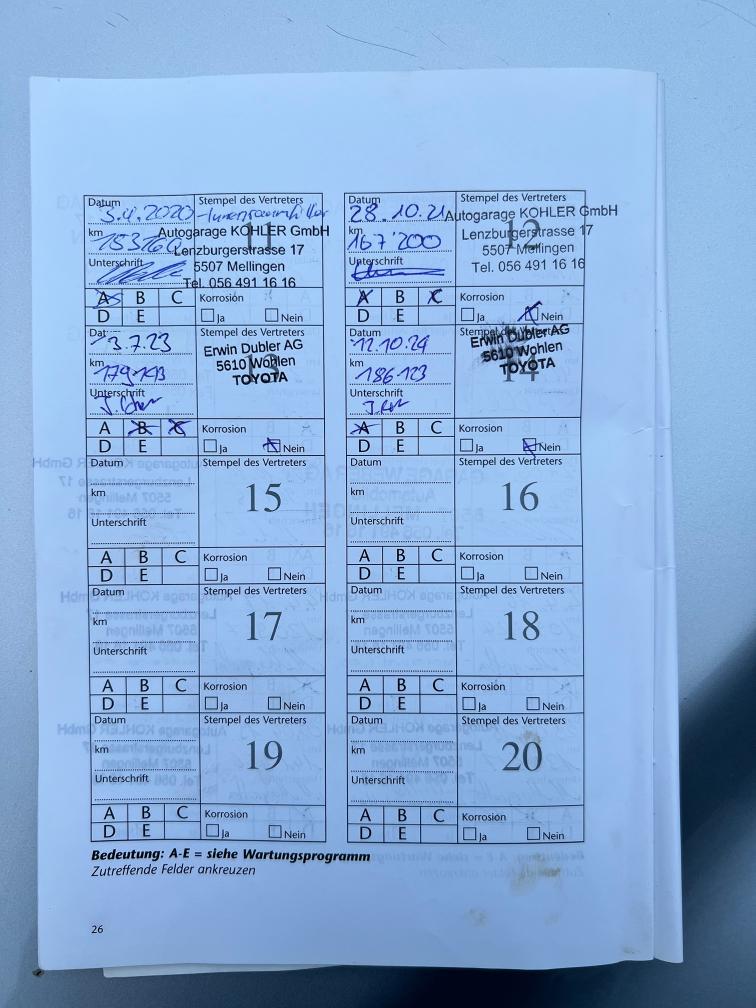 Datum 3.4.2020
Stempel des Vertreters
km
Autogarage KOHLER GmbH
Lenzburgerstrasse 17
Unterschrift
5507 Mellingen
Tel. 056 491 16 16
A B C Korrosion
D E Ja Nein
Datum 28.10.21
Stempel des Vertreters
12
Autogarage KOHLER GmbH
km 167'200
Lenzburgerstrasse 17
5507 Mellingen
Unterschrift
Tel. 056 491 16 16
A B C Korrosion
D E Ja Nein
3.7.23
Stempel des Vertreters
13
Erwin Dubler AG
km
5610 Wohlen
TOYOTA
Unterschrift
A B C Korrosion
D E Ja Nein
Datum 12.10.24
Stempel des Vertreters
14
Erwin Dubler AG
km 186.123
5610 Wohlen
TOYOTA
Unterschrift
A B C Korrosion
D E Ja Nein
Datum
Stempel des Vertreters
km
15
Unterschrift
A B C Korrosion
D E Ja Nein
Datum
Stempel des Vertreters
km
16
Unterschrift
A B C Korrosion
D E Ja Nein
Datum
Stempel des Vertreters
km
17
Unterschrift
A B C Korrosion
D E Ja Nein
Datum
Stempel des Vertreters
km
18
Unterschrift
A B C Korrosion
D E Ja Nein
Datum
Stempel des Vertreters
km
19
Unterschrift
A B C Korrosion
D E Ja Nein
Datum
Stempel des Vertreters
km
20
Unterschrift
A B C Korrosion
D E Ja Nein
Bedeutung: A-E = siehe Wartungsprogramm
Zutreffende Felder ankreuzen
26